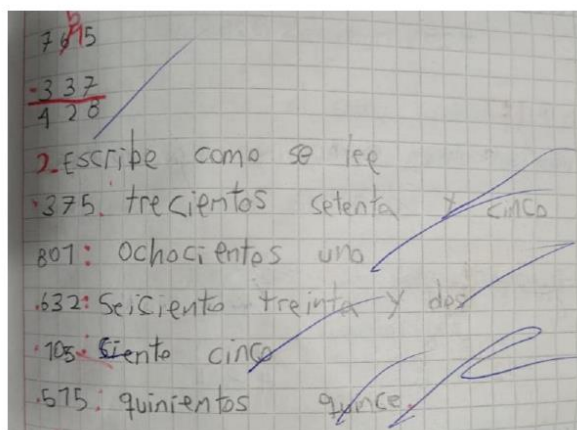 7 6 15
- 3 3 7
4 2 8
2. Escribe como se lee
375. trecientos setenta y cinco
801: Ochocientos uno
.632: Seiciento treinta y dos
.105: Siento cinco
.515: quinientos quince.